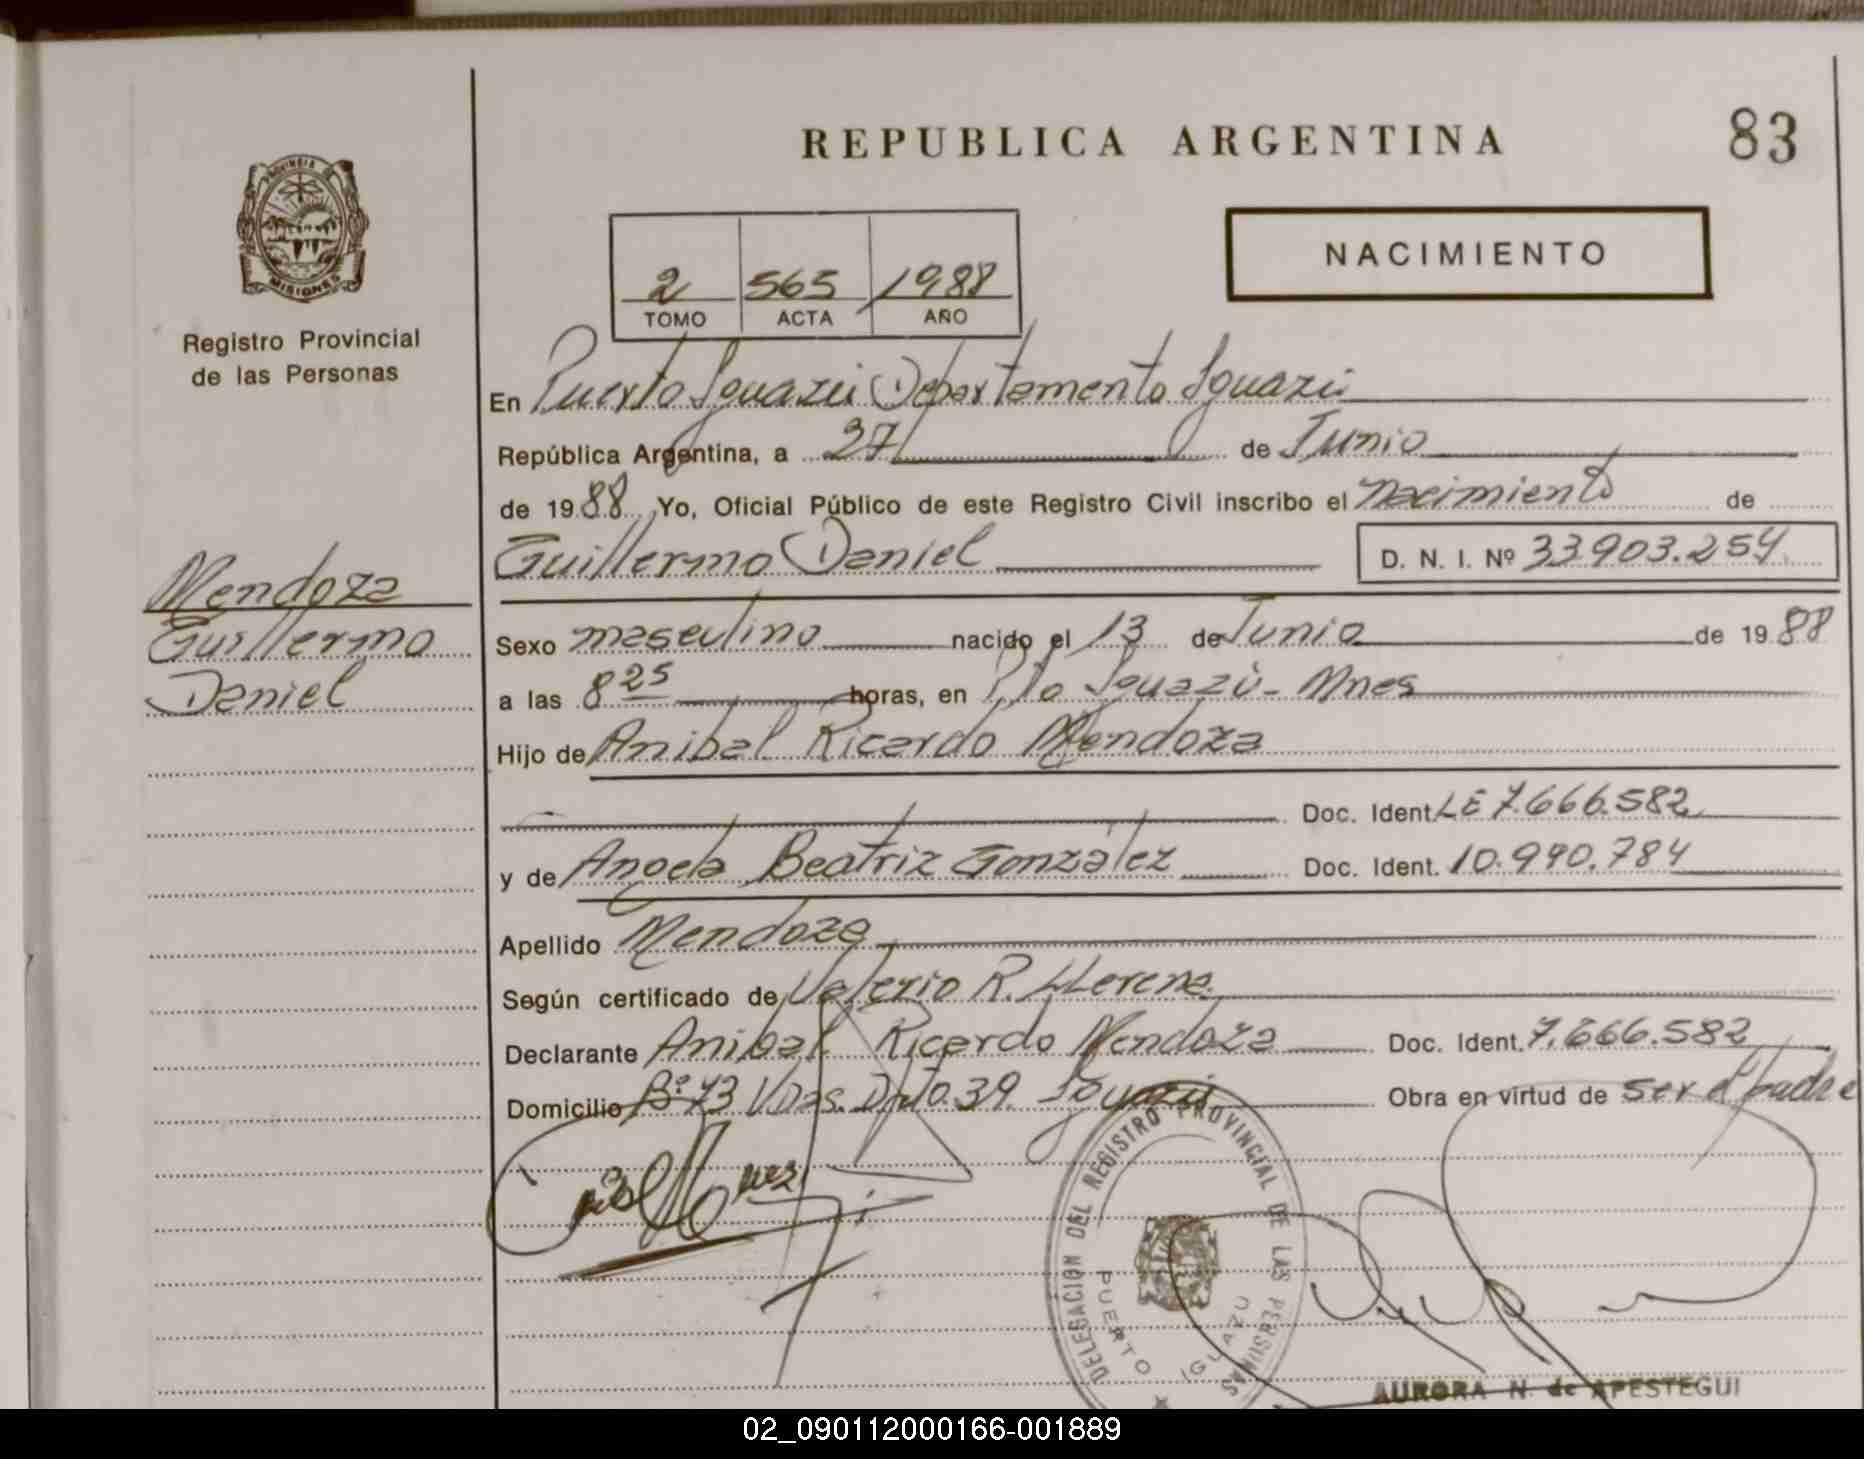 REPUBLICA ARGENTINA
83
PROVINCIA DE
MISIONES
Registro Provincial
de las Personas
NACIMIENTO
2 565 1988
TOMO ACTA AÑO
En Puerto Iguazú Departamento Iguazú
República Argentina, a 27 de Junio
de 1988 Yo, Oficial Público de este Registro Civil inscribo el nacimiento de
Guillermo Daniel D. N. I. Nº 33.903.254
Mendoza
Guillermo
Daniel
Sexo masculino nacido el 13 de Junio de 1988
a las 8 25 horas, en Pto Iguazú - Mnes
Hijo de Anibal Ricardo Mendoza
Doc. Ident. LE 7.666.582
y de Angela Beatriz González Doc. Ident. 10.990.784
Apellido Mendoza
Según certificado de Valerio R. LLerena
Declarante Anibal Ricardo Mendoza Doc. Ident. 7.666.582
Domicilio Bº 73 Vdas. Dpto. 39 Iguazú Obra en virtud de ser el padre
DELEGACION DEL REGISTRO PROVINCIAL DE LAS PERSONAS
PUERTO IGUAZU
AURORA N. de APESTEGUI
02_090112000166-001889